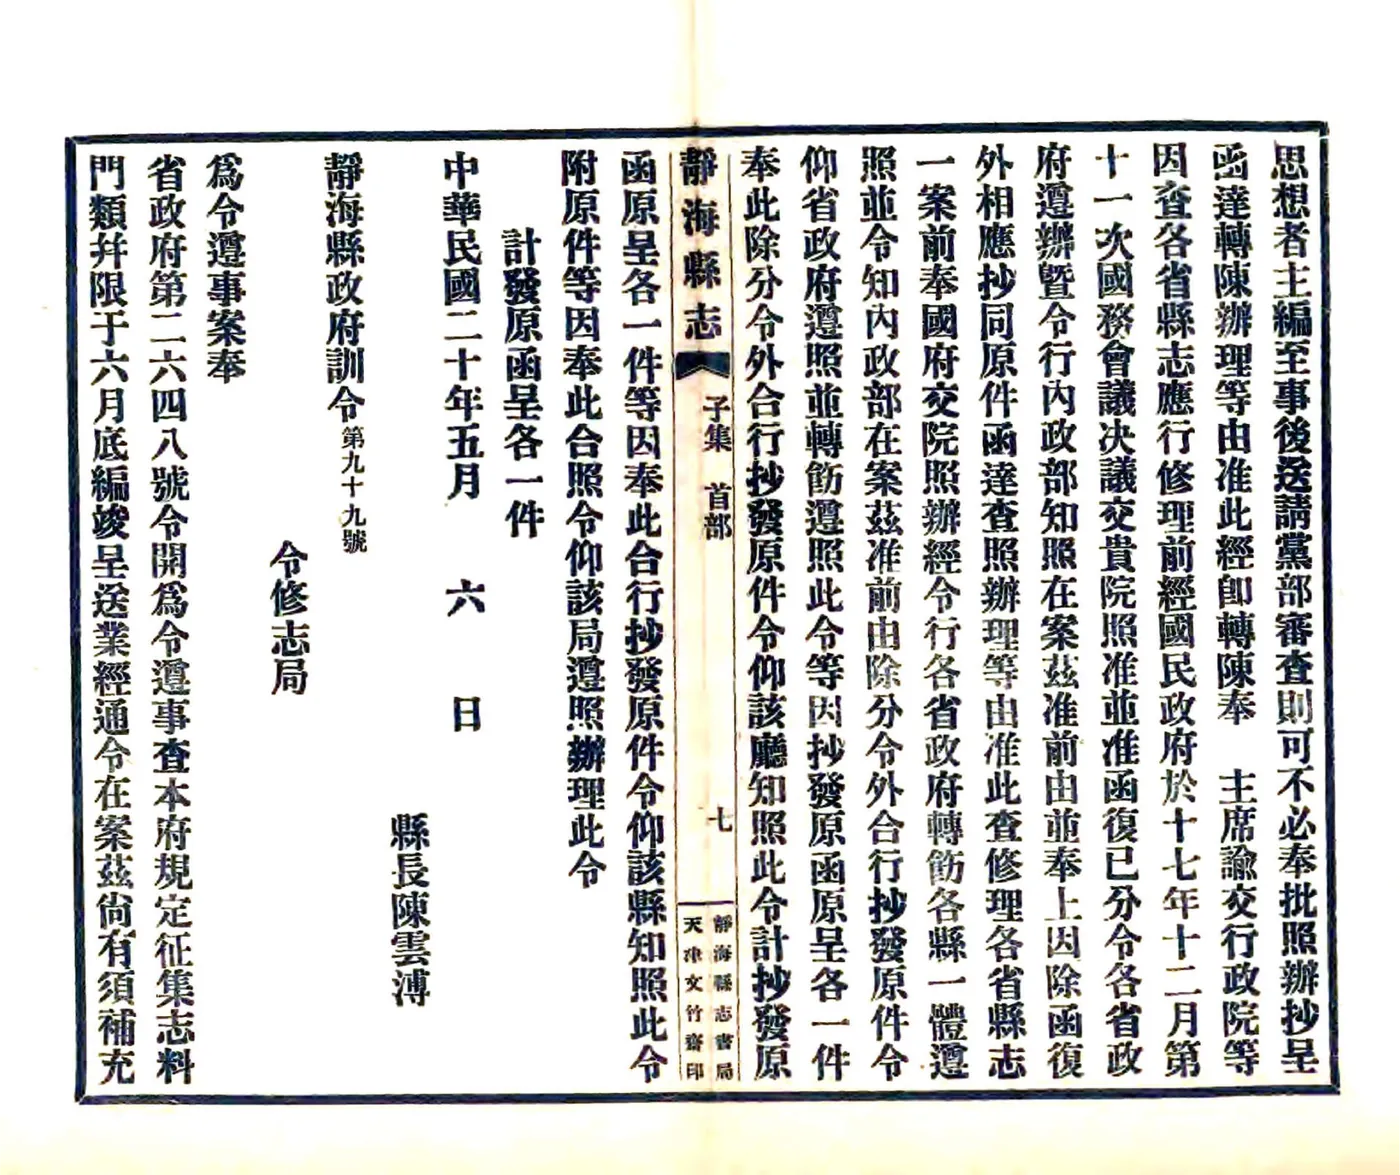 思想者主編至事後送請黨部審查則可不必奉批照辦抄呈
函達轉陳辦理等由准此經卽轉陳奉　主席諭交行政院等
因查各省縣志應行修理前經國民政府於十七年十二月第
十一次國務會議决議交貴院照准並准函復已分令各省政
府遵辦暨令行內政部知照在案茲准前由並奉上因除函復
外相應抄同原件函達查照辦理等由准此查修理各省縣志
一案前奉國府交院照辦經令行各省政府轉飭各縣一體遵
照並令知內政部在案茲准前由除分令外合行抄發原件令
仰省政府遵照並轉飭遵照此令等因抄發原函原呈各一件
奉此除分令外合行抄發原件令仰該廳知照此令計抄發原
靜海縣志　子集　首部　七　靜海縣志書局
天津文竹齋印
函原呈各一件等因奉此合行抄發原件令仰該縣知照此令
附原件等因奉此合照令仰該局遵照辦理此令
計發原函呈各一件
中華民國二十年五月　六　日
縣長陳雲溥
靜海縣政府訓令第九十九號
令修志局
爲令遵事案奉
省政府第二六四八號令開爲令遵事查本府規定征集志料
門類幷限于六月底編竣呈送業經通令在案茲尙有須補充